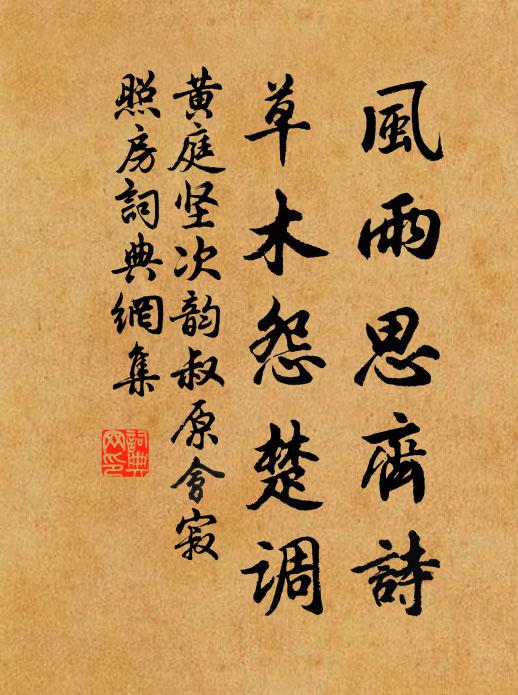 風雨思齊詩
草木怨楚调
黄庭坚次韵叔原會寂
照房詞典網集
詞典网印